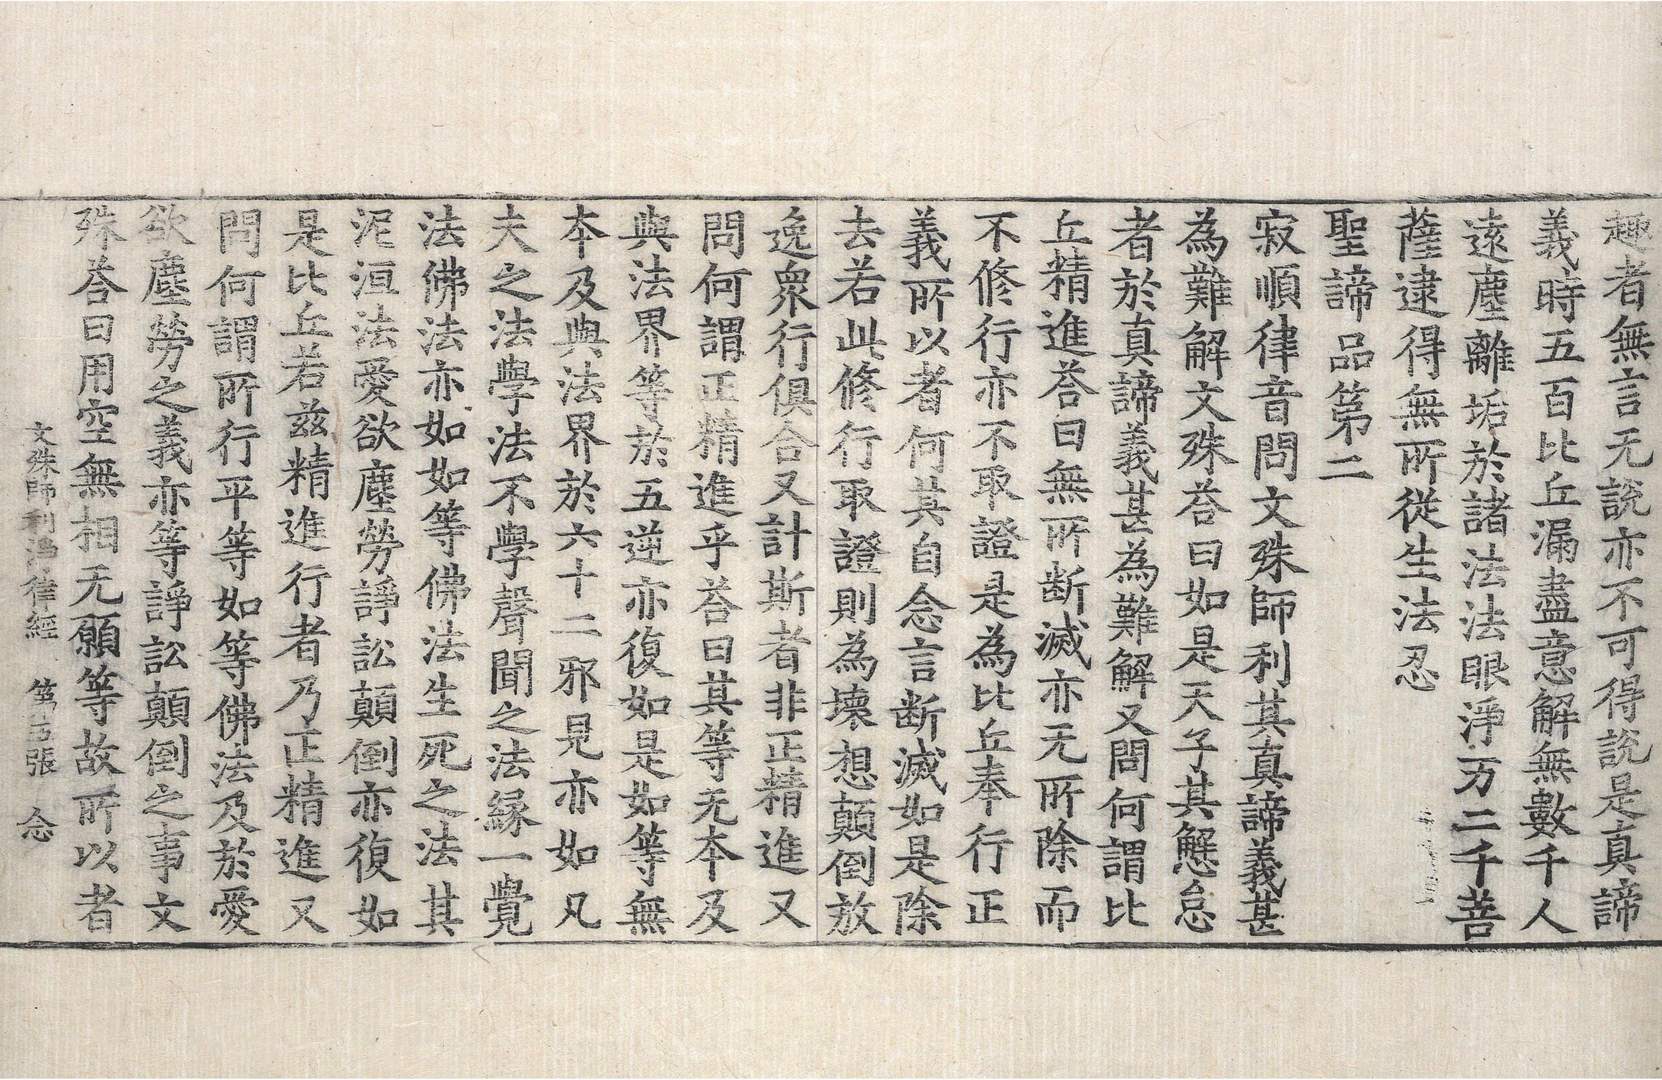 趣者無言无說亦不可得說是真諦
義時五百比丘漏盡意解無數千人
遠塵離垢於諸法法眼淨万二千菩
薩逮得無所從生法忍
聖諦品第二
寂順律音問文殊師利其真諦義甚
為難解文殊荅曰如是天子其懈怠
者於真諦義甚為難解又問何謂比
丘精進荅曰無所断滅亦无所除而
不修行亦不取證是為比丘奉行正
義所以者何其自念言断滅如是除
去若此修行取證則為壞想顛倒放
逸衆行俱合又計斯者非正精進又
問何謂正精進乎荅曰其等无本及
與法界等於五逆亦復如是如等無
本及與法界於六十二邪見亦如凡
夫之法學法不學聲聞之法縁一覺
法佛法亦如如等佛法生死之法其
泥洹法愛欲塵勞諍訟顛倒亦復如
是比丘若兹精進行者乃正精進又
問何謂所行平等如等佛法及於愛
欲塵勞之義亦等諍訟顛倒之事文
殊荅曰用空無相无願等故所以者
文殊師利淨律經 第 張 念